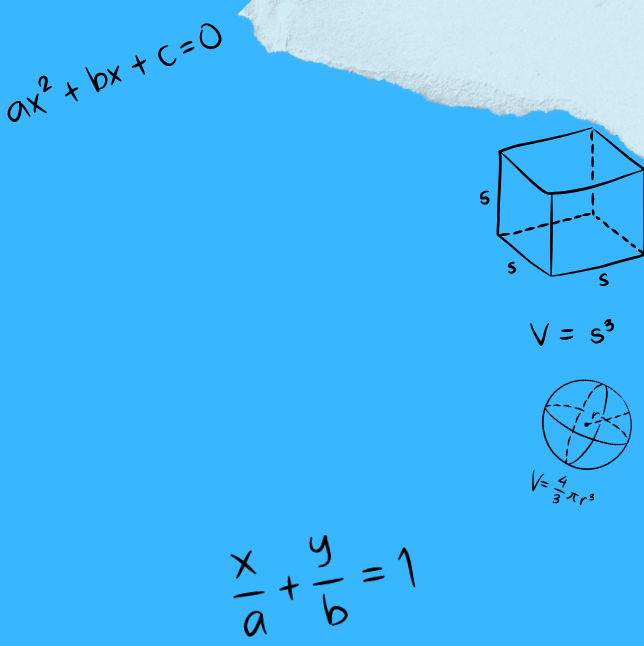 ax² + bx + c = 0
s
s
s
V = s³
r
V = 4/3 πr³
x/a + y/b = 1